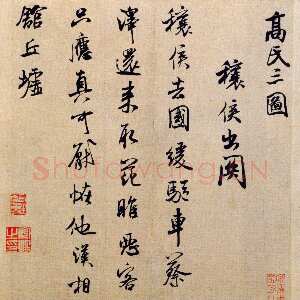 高氏三圖
穰侯出関
穰侯去國緩驅車蔡
澤還來取范睢客
只應真可恠他漢相
舘丘墟
Shufawang.CN